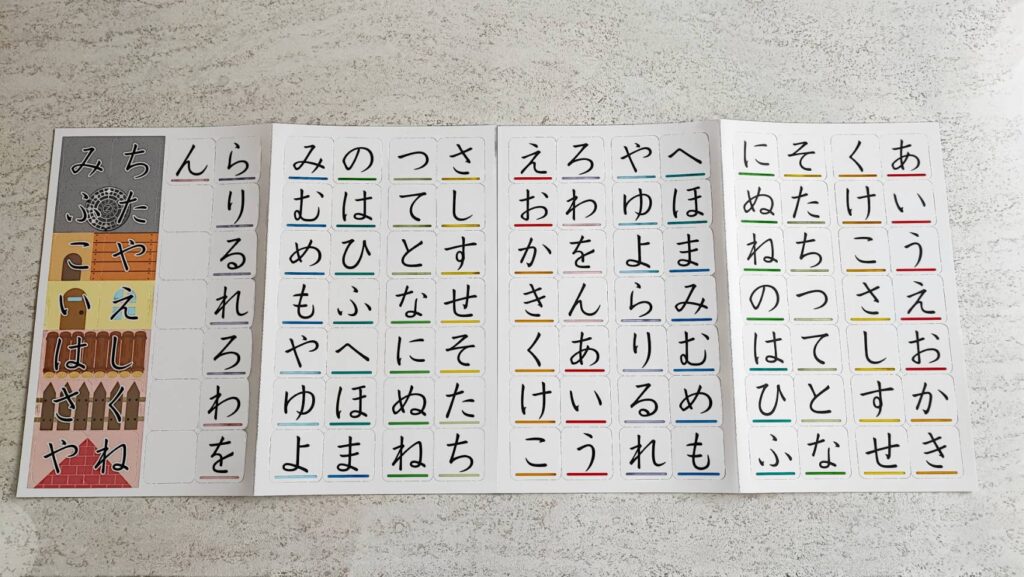 あいうえおかき
くけこさしすせ
そたちつてとな
にぬねのはひふ
へほまみむめも
やゆよらりるれ
ろわをんあいう
えおかきくけこ
さしすせそたち
つてとなにぬね
のはひふへほま
みむめもやゆよ
らりるれろわを
ん
みち
ふた
こや
いえ
はし
さく
やね